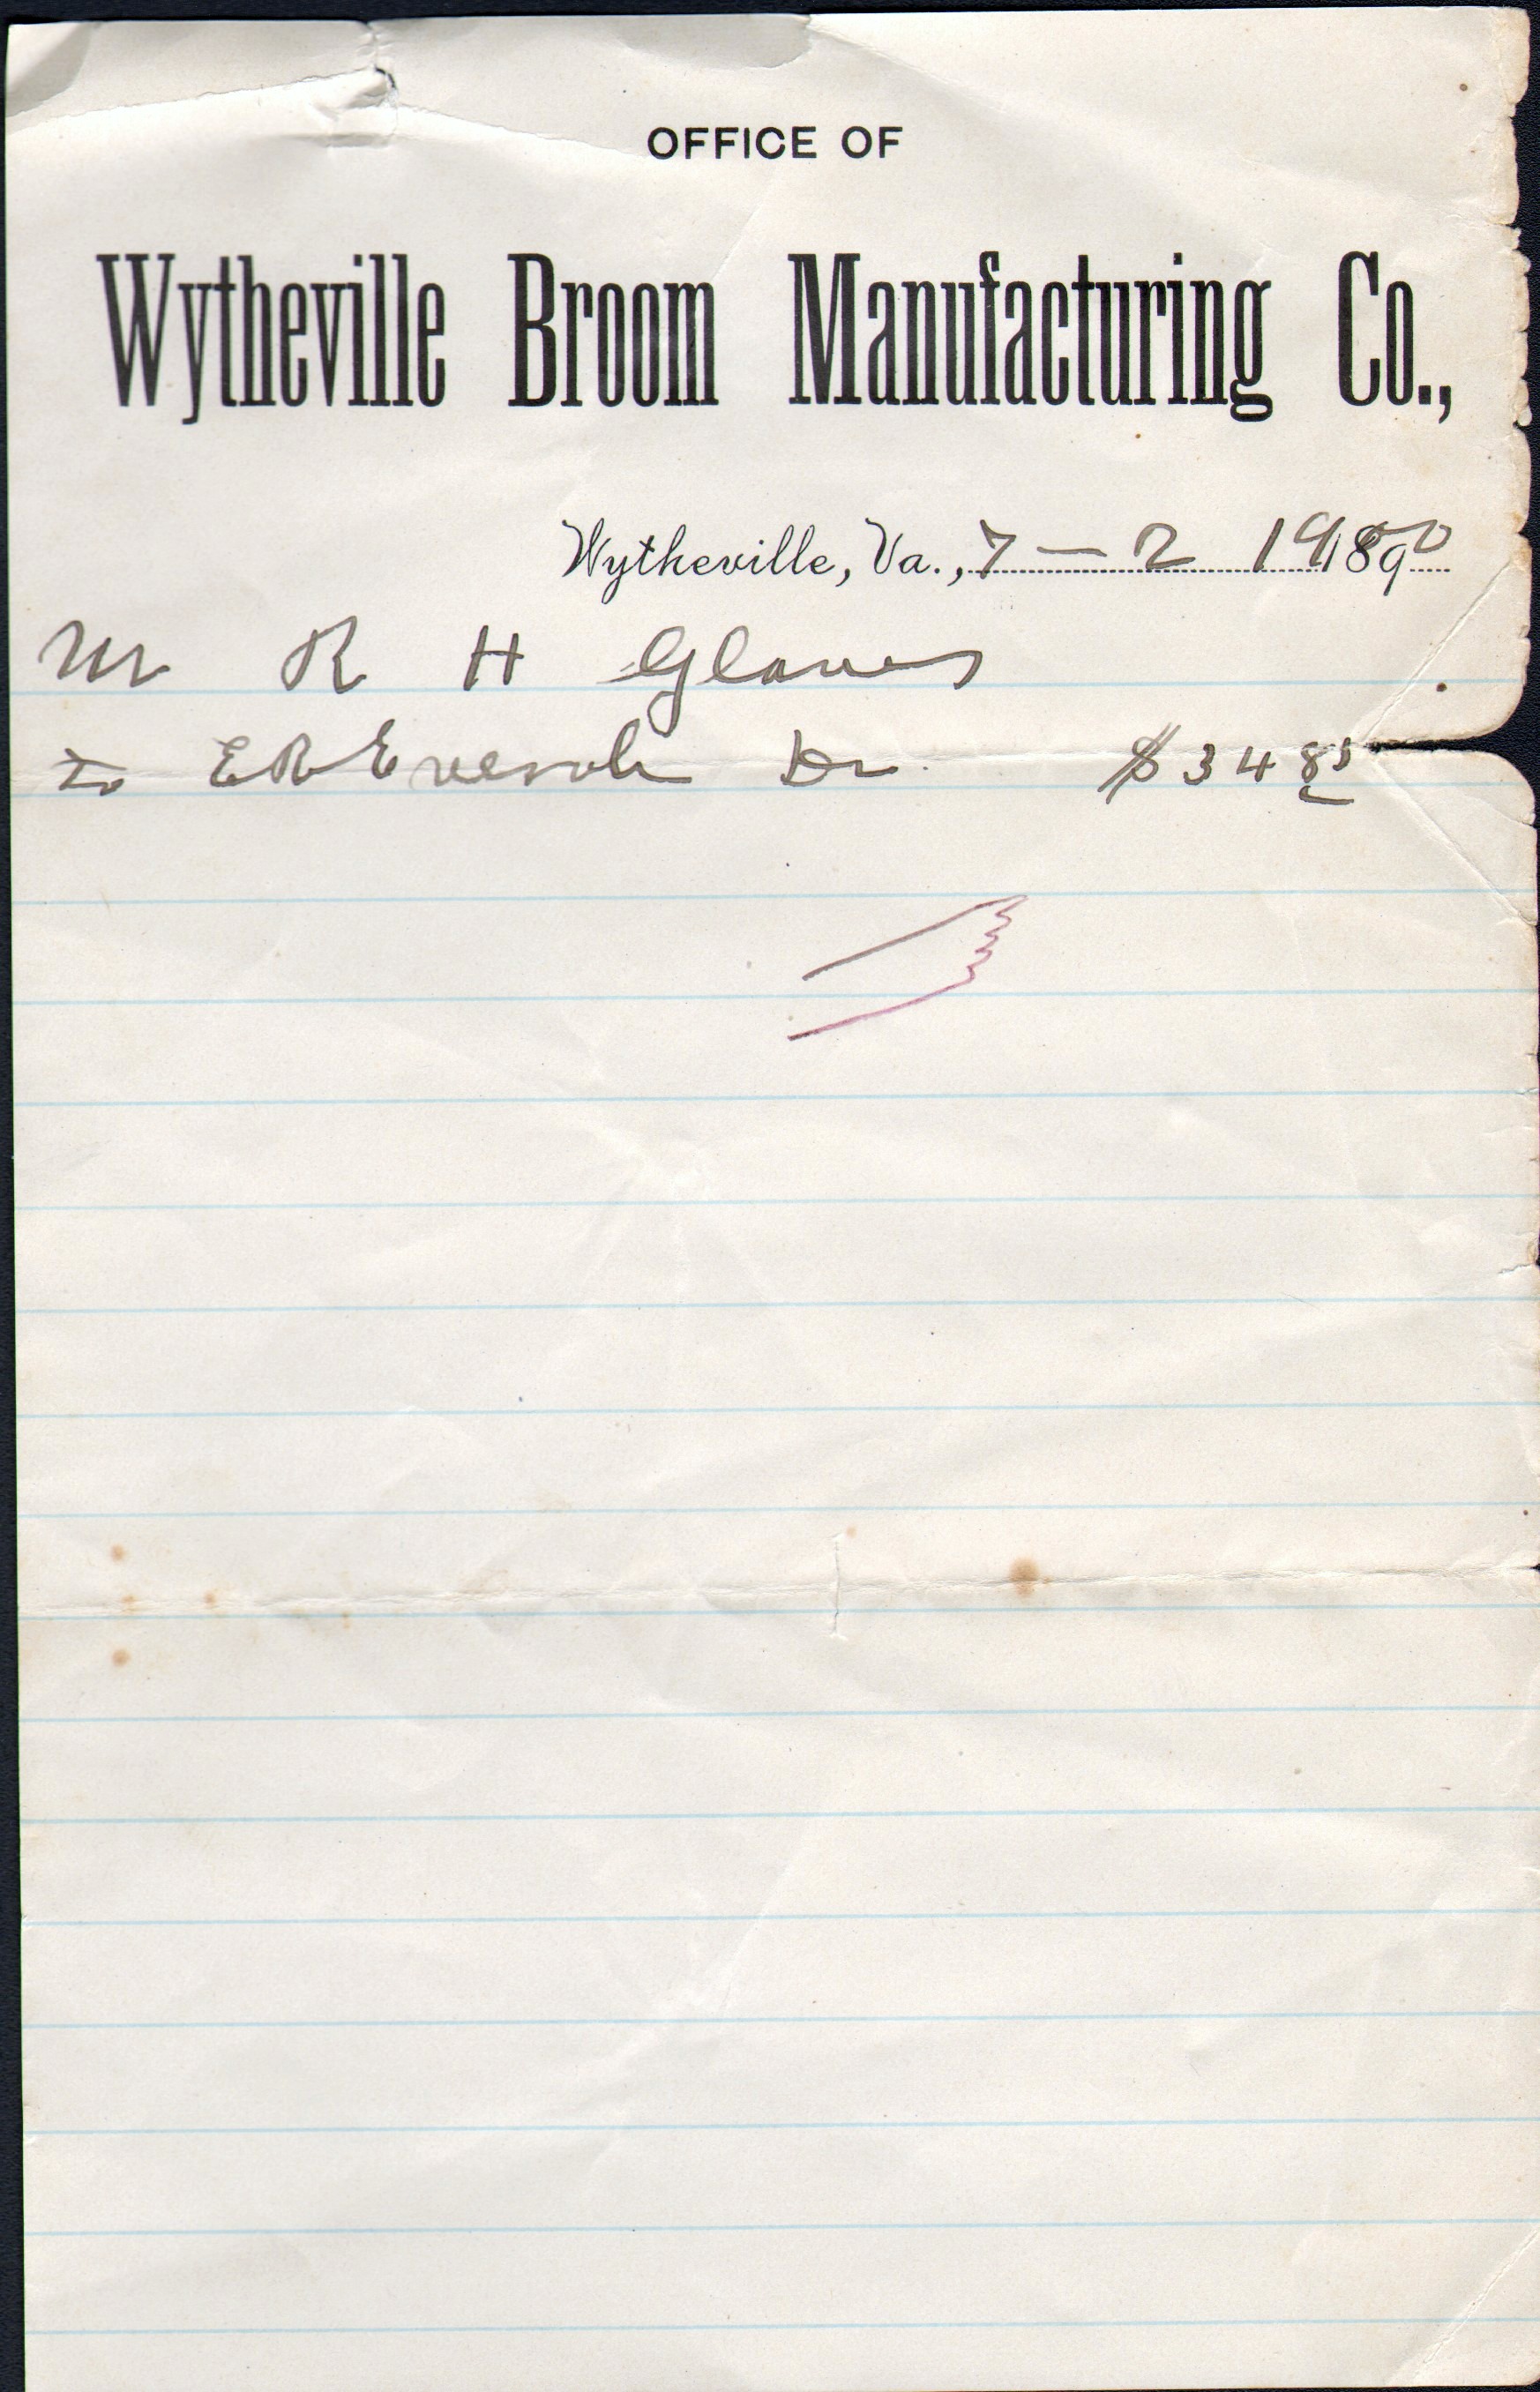 OFFICE OF
Wytheville Broom Manufacturing Co.,
Wytheville, Va., 7 — 2 19 189 00
Mr R H Glaves
To E R Eversole Dr. $34 85